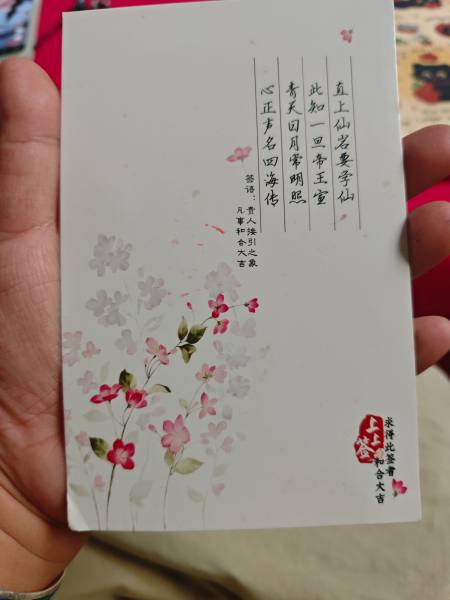 直上仙岩要学仙
此知一旦帝王宣
青天日月常明照
心正声名四海传
签语：贵人接引之象
凡事和合大吉
上上签
求得此签者
和合大吉